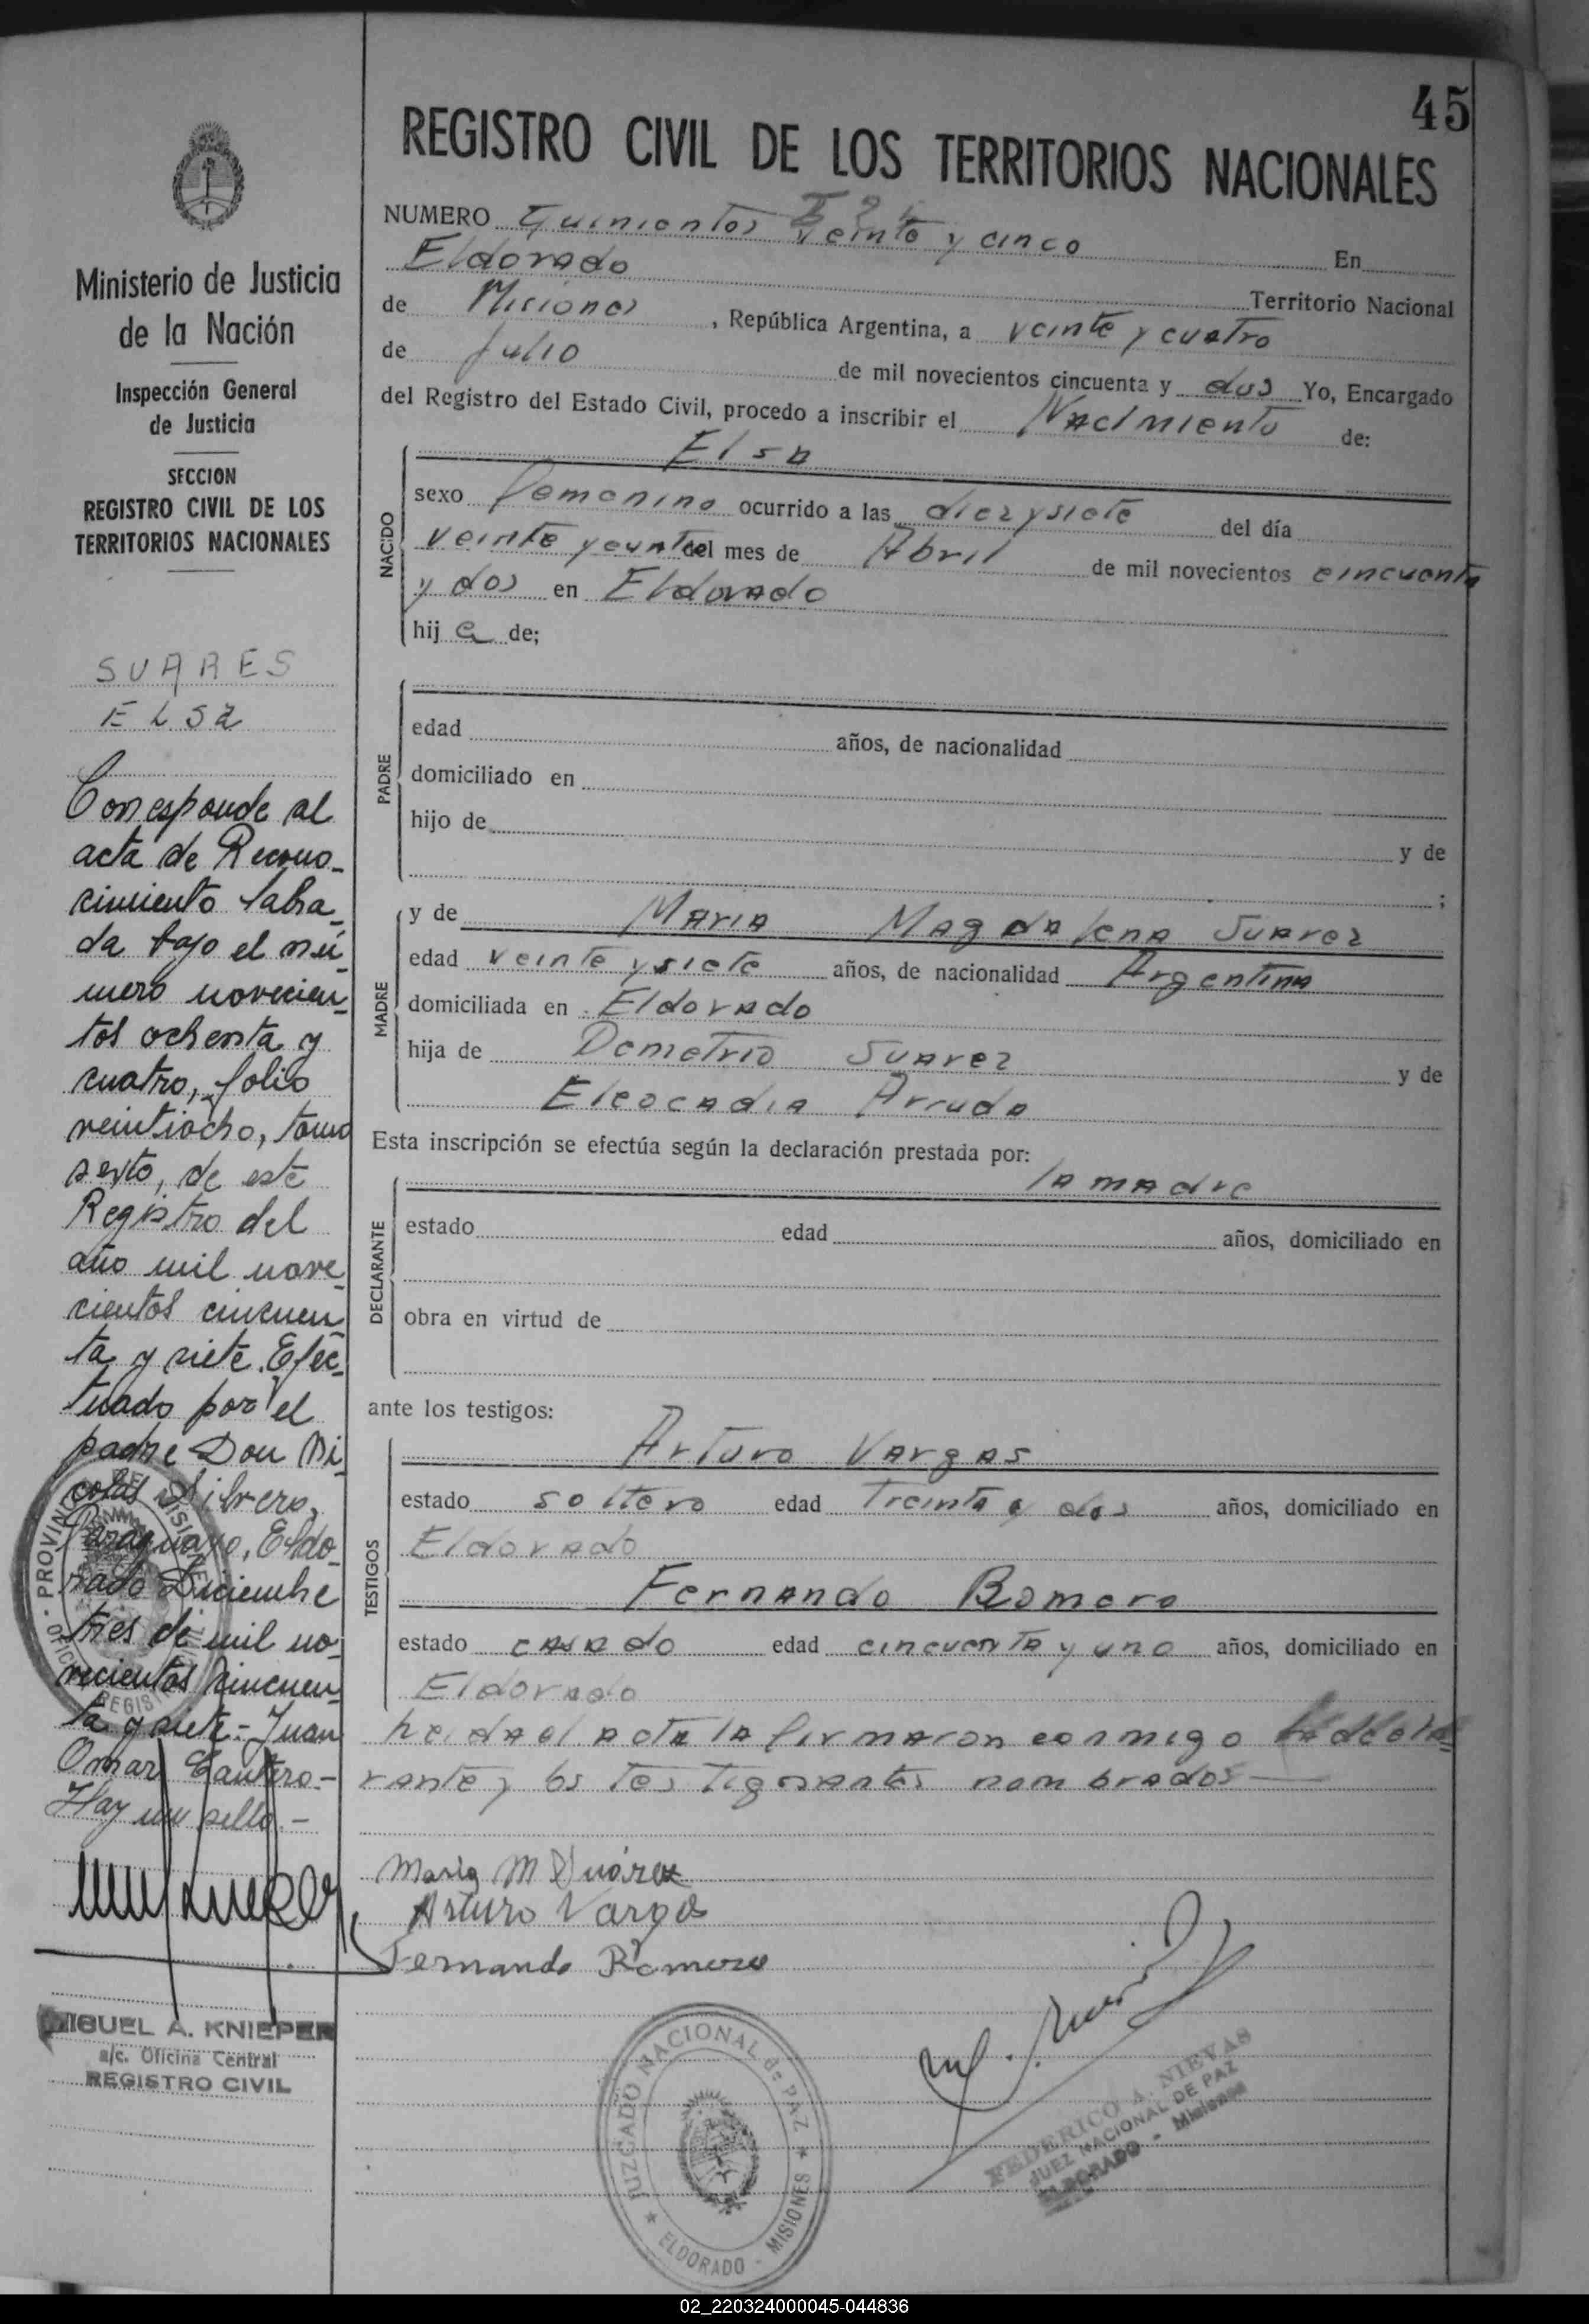 45
REGISTRO CIVIL DE LOS TERRITORIOS NACIONALES
NUMERO Quinientos veinte y cinco En
Eldorado Territorio Nacional
de Misiones, República Argentina, a veinte y cuatro
de Julio de mil novecientos cincuenta y dos Yo, Encargado
del Registro del Estado Civil, procedo a inscribir el Nacimiento de:
NACIDO
Elsa
sexo femenino ocurrido a las diez y siete del día
veinte y cuatro del mes de Abril de mil novecientos cincuenta
y dos en Eldorado
hij a de;
PADRE
edad años, de nacionalidad
domiciliado en
hijo de y de
;
MADRE
y de Maria Magdalena Suarez
edad veinte y siete años, de nacionalidad Argentina
domiciliada en Eldorado
hija de Demetrio Suarez y de
Eleocadia Arruda
Esta inscripción se efectúa según la declaración prestada por:
DECLARANTE
la madre
estado edad años, domiciliado en
obra en virtud de
ante los testigos:
TESTIGOS
Arturo Vargas
estado soltero edad Treinta y dos años, domiciliado en
Eldorado
Fernando Romero
estado casado edad cincuenta y uno años, domiciliado en
Eldorado
Leida el acta la firmaron conmigo la decla-
rante y los testigos antes nombrados
Maria M Suárez
Arturo Vargas
Fernando Romero
JUZGADO NACIONAL de PAZ
ELDORADO - MISIONES
FEDERICO A. NIEVAS
JUEZ NACIONAL DE PAZ
ELDORADO - Misiones
Ministerio de Justicia
de la Nación
Inspección General
de Justicia
SECCION
REGISTRO CIVIL DE LOS
TERRITORIOS NACIONALES
SUARES
ELSa
Corresponde al
acta de Recono-
cimiento labra-
da bajo el nú-
mero novecien-
tos ochenta y
cuatro, folio
veintiocho, tomo
sexto, de este
Registro del
año mil nove-
cientos cincuen-
ta y siete. Efec-
tuado por el
padre Don Ni-
colás Silvero,
Paraguayo, Eldo-
rado Diciembre
tres de mil no-
vecientos cincuen-
ta y siete.- Juan
Omar Cantero.-
Hay un sello.-
MIGUEL A. KNIEPER
a/c. Oficina Central
REGISTRO CIVIL
02_220324000045-044836